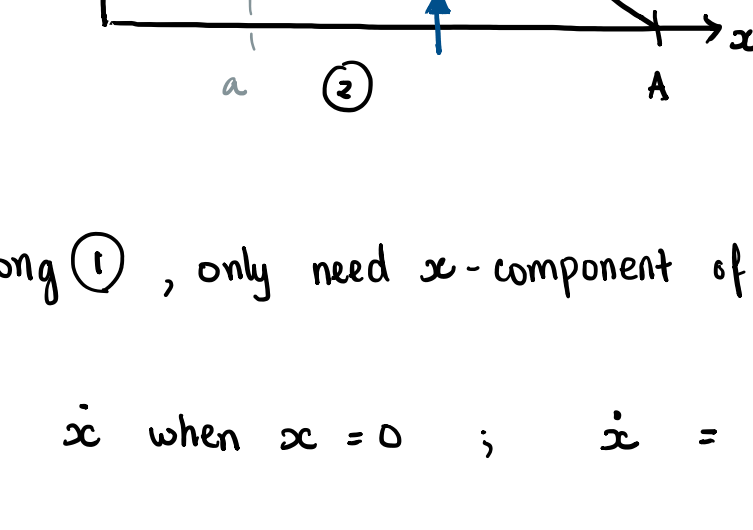 x
a ② A
ong ① , only need x-component of
ẋ when x = 0 ; ẋ =